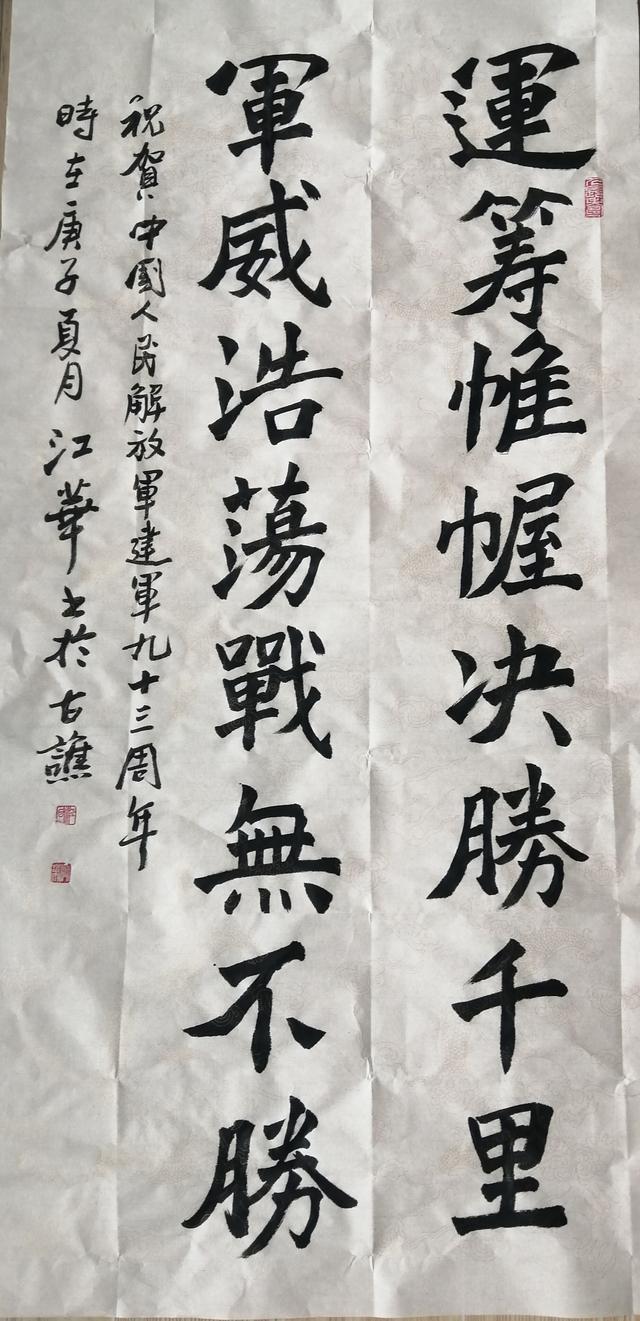 運筹帷幄决勝千里
軍威浩蕩戰無不勝
祝賀中國人民解放軍建軍九十三周年
時在庚子夏月江華书於古譙